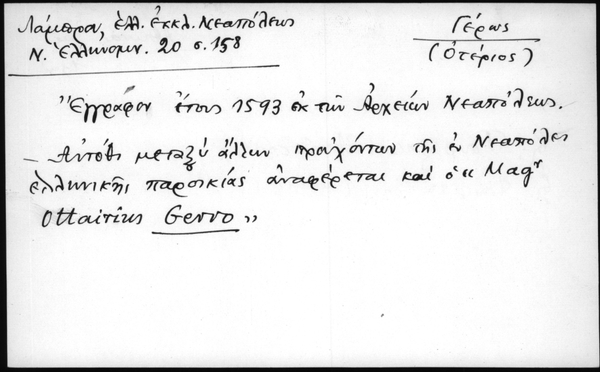 Λάμπρου, ἑλλ. ἐκκλ. Νεαπόλεως
Ν. Ἑλληνομν. 20 σ. 158
Γέρως
(Ὀτέριος)
Ἔγγραφον ἔτους 1593 ἐκ τῶν Ἀρχείων Νεαπόλεως.
– Αὐτόθι μεταξύ ἄλλων προὐχόντων τῆς ἐν Νεαπόλει
ἑλληνικῆς παροικίας ἀναφέρεται καὶ ὁ „ Magʳ
Gerro „